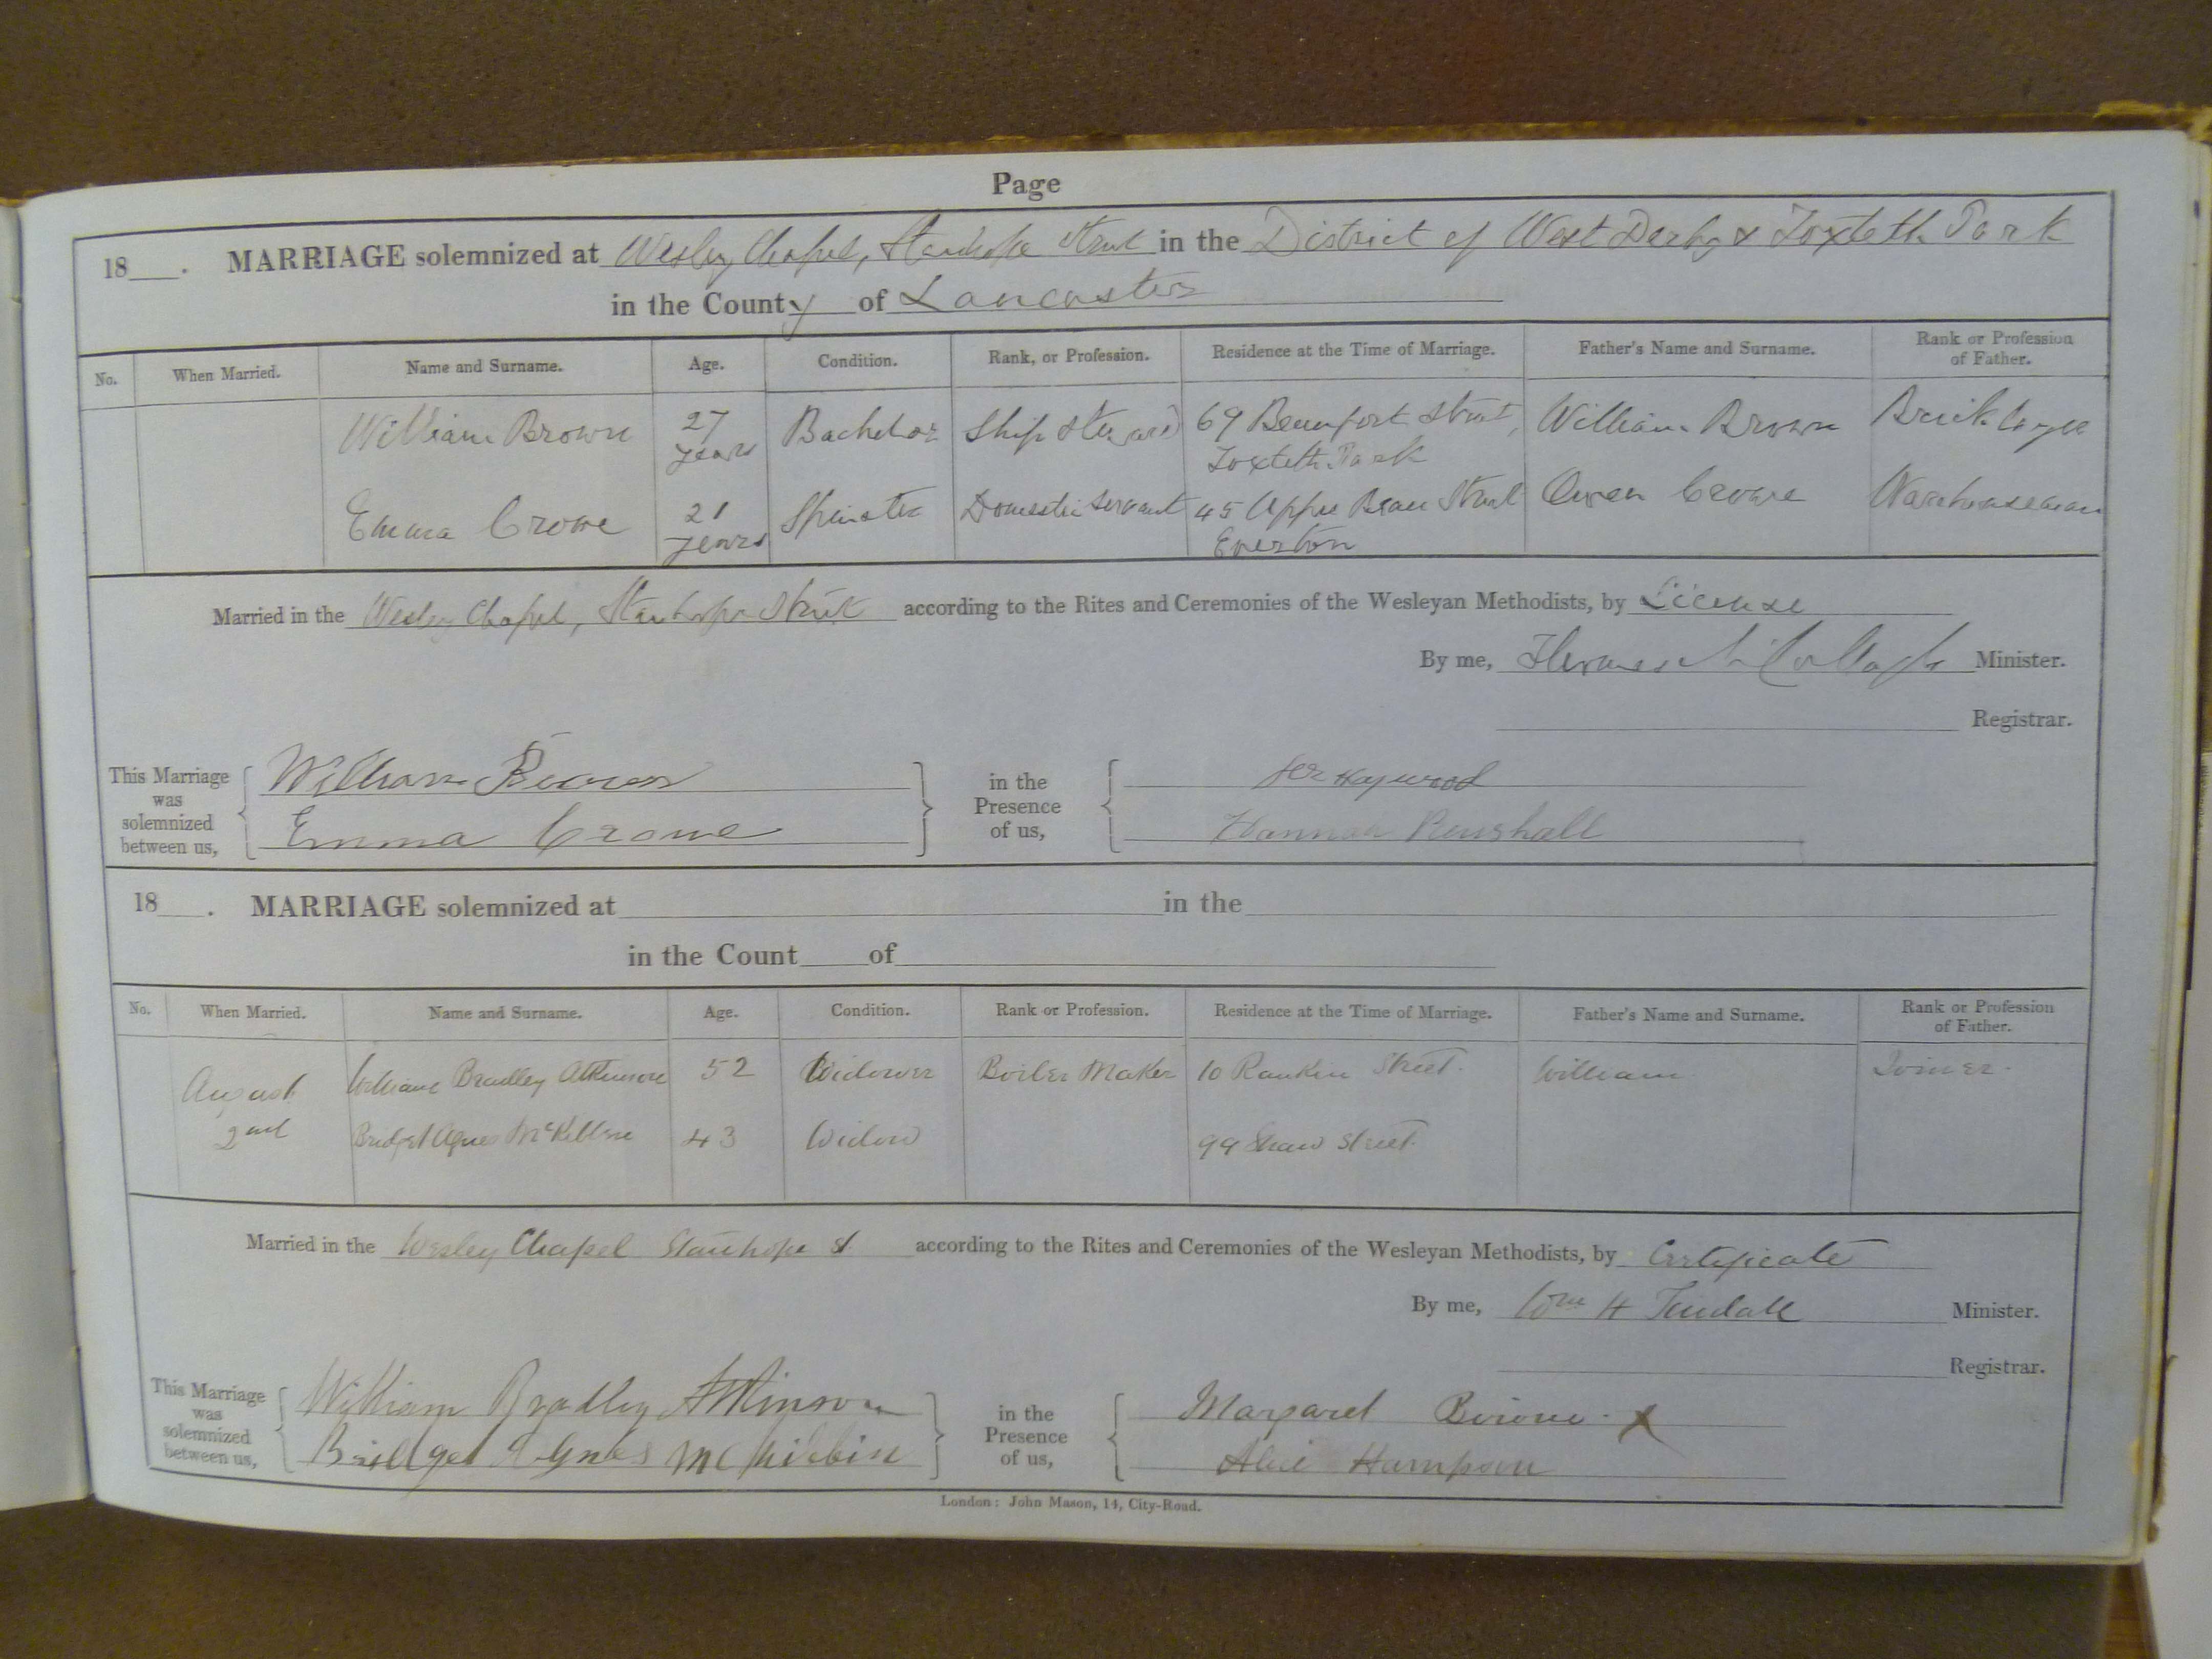 Page
18 . MARRIAGE solemnized at Wesley Chapel, Stanhope Street in the District of West Derby & Toxteth Park
in the County of Lancaster
No. When Married. Name and Surname. Age. Condition. Rank, or Profession. Residence at the Time of Marriage. Father's Name and Surname. Rank or Profession of Father.
William Brown 27 years Bachelor Ship Steward 69 Beaufort Street, Toxteth Park William Brown Bricklayer
Emma Crowe 21 years Spinster Domestic Servant 45 Upper Beau Street Everton Owen Crowe Warehouseman
Married in the Wesley Chapel, Stanhope Street according to the Rites and Ceremonies of the Wesleyan Methodists, by License
By me, Thomas McCullagh Minister.
Registrar.
This Marriage was solemnized between us,
William Brown
Emma Crowe
in the Presence of us,
Haywood
Hannah
18 . MARRIAGE solemnized at in the
in the Count of
No. When Married. Name and Surname. Age. Condition. Rank or Profession. Residence at the Time of Marriage. Father's Name and Surname. Rank or Profession of Father.
August 2nd William Bradley Atkinson 52 Widower Boiler Maker 10 Rankin Street. William Joiner.
Bridget Agnes 43 Widow 99 Shaw Street.
Married in the Wesley Chapel Stanhope St according to the Rites and Ceremonies of the Wesleyan Methodists, by Certificate
By me, Wm H Tindall Minister.
Registrar.
This Marriage was solemnized between us,
William Bradley Atkinson
Bridget Agnes McKibbin
in the Presence of us,
Margaret X
Alice Hampson
London: John Mason, 14, City-Road.